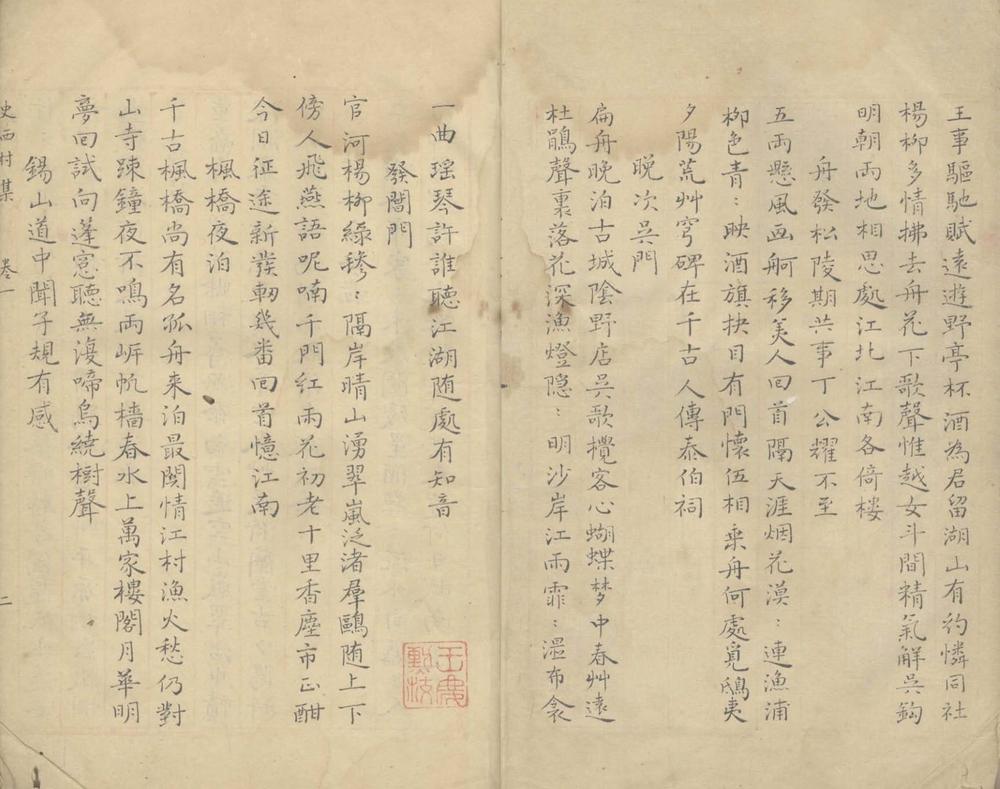 王事驅馳賦遠遊野亭杯酒為君留湖山有約憐同社
楊柳多情拂去舟花下歌聲惟越女斗間精氣解吳鈎
明朝兩地相思處江北江南各倚樓
舟發松陵期共事丁公耀不至
五兩懸風画舸移美人回首隔天涯烟花漠〻連漁浦
柳色青〻映酒旗抉目有門懷伍相乗舟何處覓鴟夷
夕陽荒艸穹碑在千古人傳泰伯祠
晚次吳門
扁舟晚泊古城陰野店吳歌攪客心蝴蝶梦中春艸遠
杜鵑聲裏落花深漁燈隱〻明沙岸江雨霏〻濕布衾
一曲瑶琴許誰聽江湖随處有知音
發閶門
官河楊柳綠毿〻隔岸晴山湧翠嵐泛渚羣鷗随上下
傍人飛燕語呢喃千門紅雨花初老十里香塵市正酣
今日征途新發軔幾番回首憶江南
楓橋夜泊
千古楓橋尚有名孤舟来泊最関情江村漁火愁仍對
山寺踈鐘夜不鳴兩岍帆檣春水上萬家樓閣月華明
夢回試向蓬窓聽無復啼烏繞樹聲
錫山道中聞子規有感
史西村集 卷一 二
王廣勲校